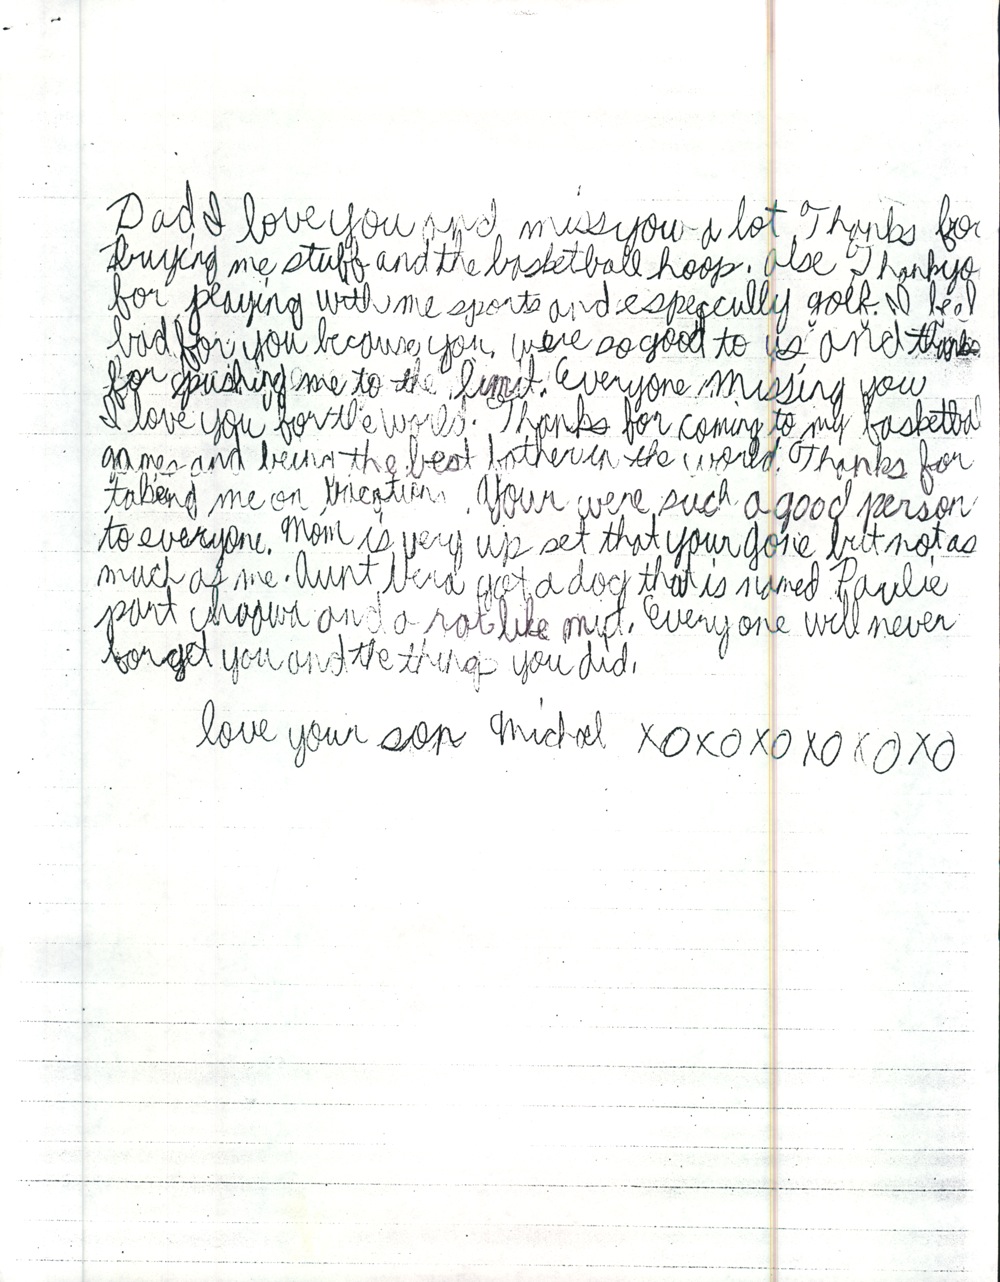 Dad I love you and miss you a lot Thanks for
buying me stuff and the basketball hoop. alse Thankyo
for playing with me sports and especcully golf. I feel
bad for you because you were so good to us and thanks
for pushing me to the limit. Everyone missing you
I love you for the world. Thanks for coming to my basketbal
games and being the best father in the world. Thanks for
me on Vacation. Your were such a good person
to everyone. Mom is very up set that your gone but not as
much as me. Aunt Vera got a dog that is named Paulie
part and a rat like mut. Everyone will never
forget you and the things you did.
love your son Michael XOXOXOXOXOXO